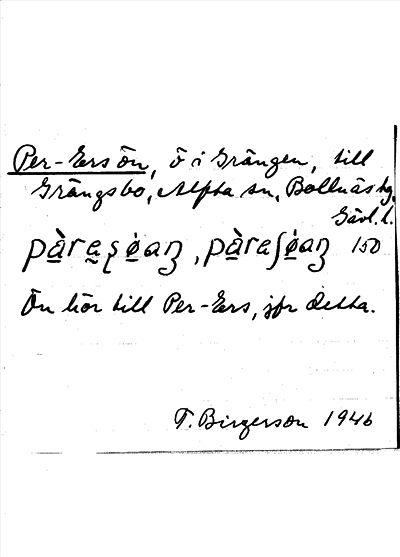 Per-Ers ön, ö i Grängen, till
Grängsbo, Alfta sn, Bollnäs tg,
Gävl. l.
150
Ön hör till Per-Ers, jfr detta.
T. Birgerson 1946